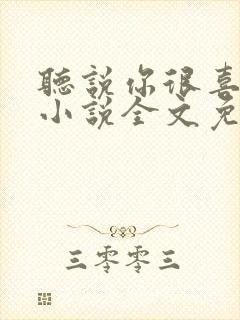 聽說你很喜
小說全文免
三零零三